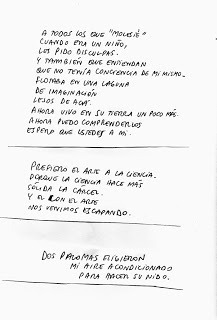 A TODOS LOS QUE "MOLESTÉ"
CUANDO ERA UN NIÑO,
LES PIDO DISCULPAS.
Y TAMBIÉN QUE ENTIENDAN
QUE NO TENÍA CONCIENCIA DE MI MISMO.
FLOTABA EN UNA LAGUNA
DE IMAGINACIÓN
LEJOS DE ACÁ.
AHORA VIVO EN SU TIERRA UN POCO MÁS.
AHORA PUEDO COMPRENDERLOS
ESPERO QUE USTEDES A MÍ.
PREFIERO EL ARTE A LA CIENCIA.
PORQUE LA CIENCIA HACE MÁS
SÓLIDA LA CÁRCEL.
Y CON EL ARTE
NOS VENIMOS ESCAPANDO.
DOS PALOMAS ELIGIERON
MI AIRE ACONDICIONADO
PARA HACER SU NIDO.